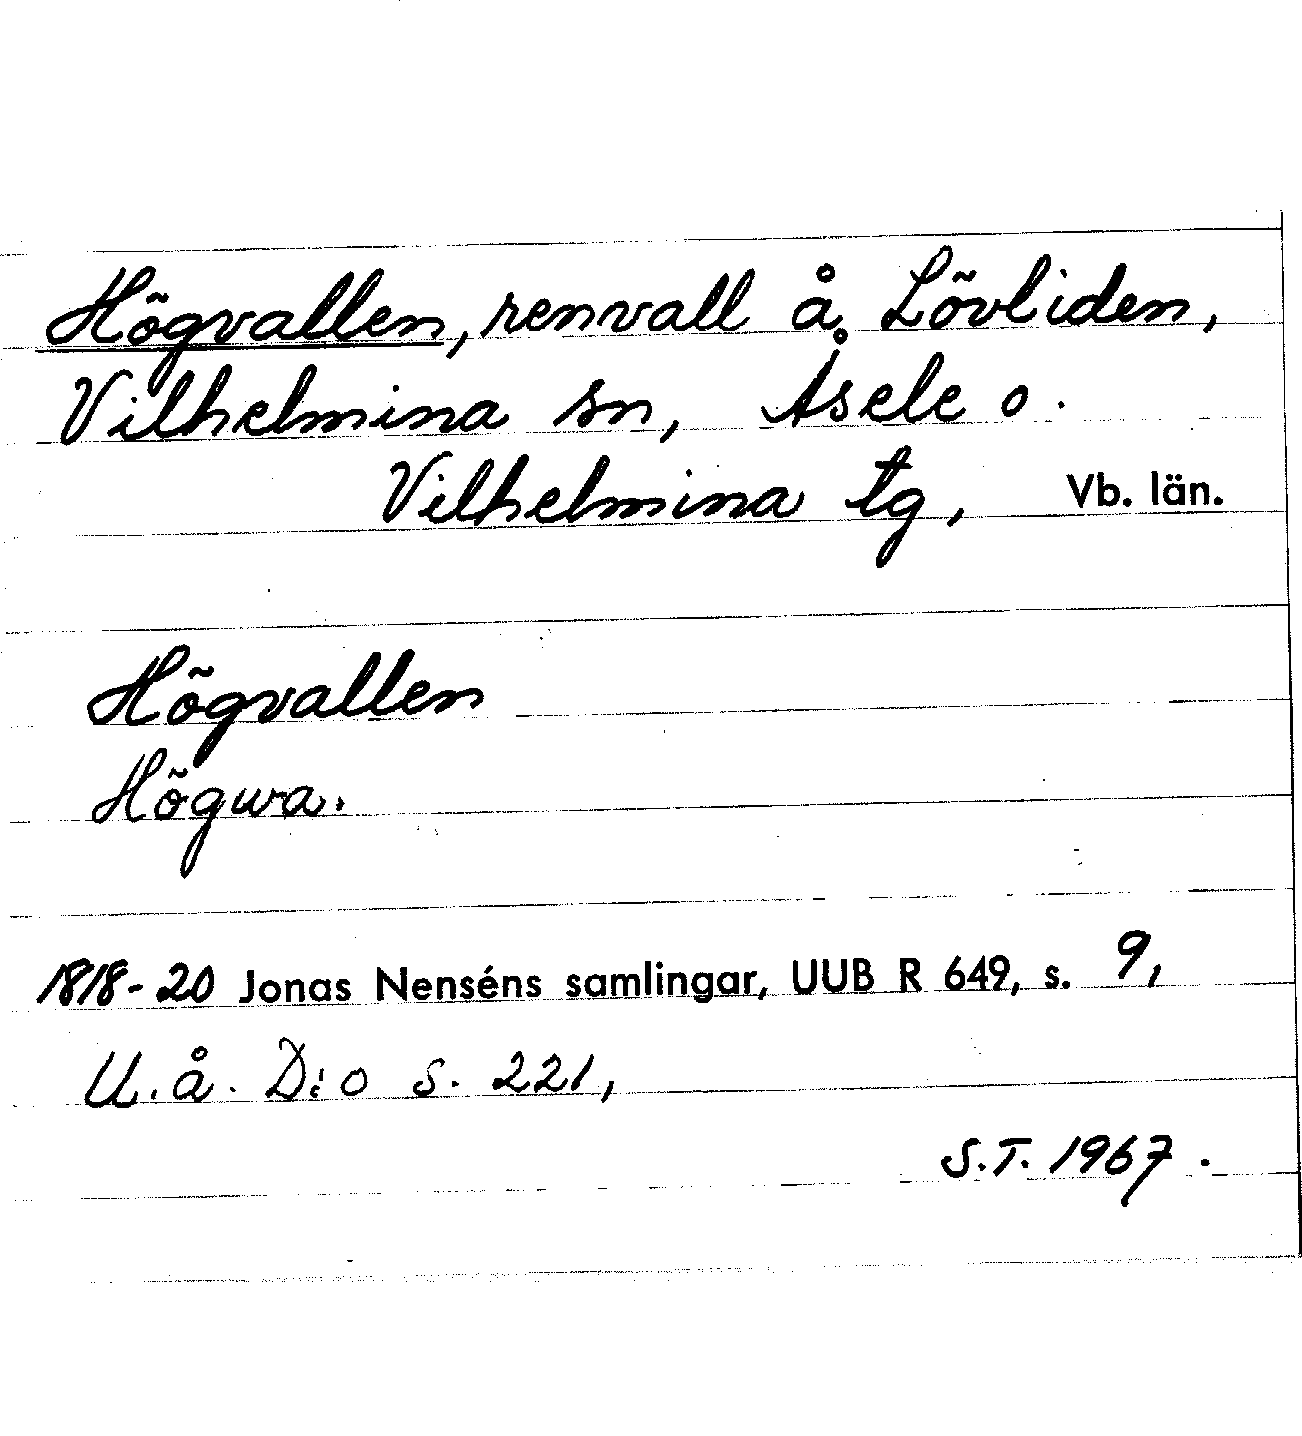 Högvallen, renvall å Lövliden,
Vilhelmina sn, Åsele o.
Vilhelmina tg, Vb. län.
Högvallen
Högwa.
1818-20 Jonas Nenséns samlingar, UUB R 649, s. 9,
U.å. D:o s. 221,
S.T. 1967.